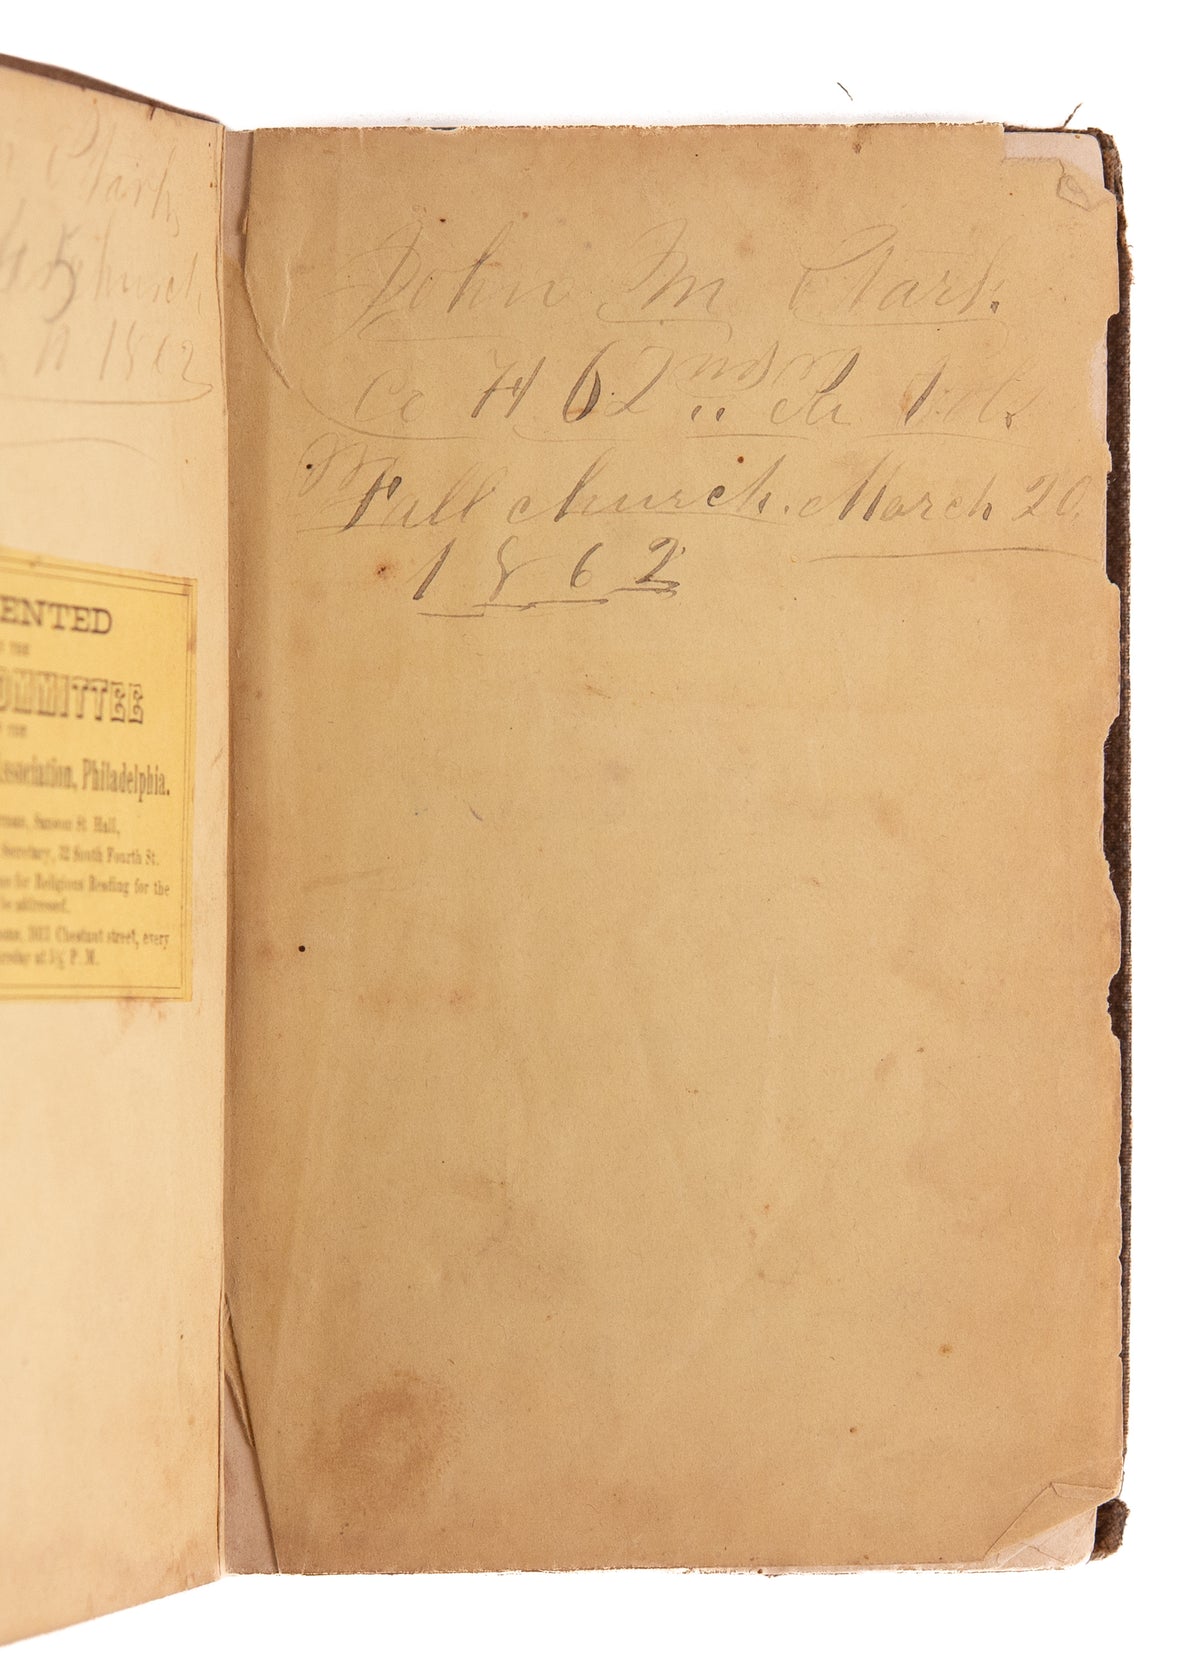 Stark
church
N 1862
ENTED
THE
OMMITTEE
THE
Association, Philadelphia.
Sansom St Hall,
Secretary, 32 South Fourth St.
for Religious Reading for the
be addressed.
1012 Chestnut street, every
at 5½ P.M.
John M Stark
Co H 62nd Vol.
Fall church. March 20,
1862